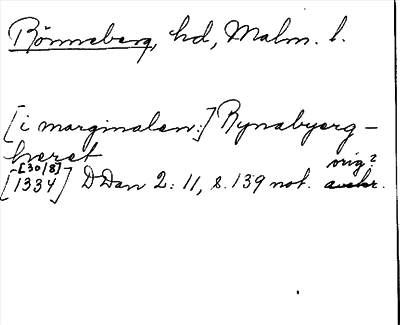 Rönneberg, hd, Malm. l.
[i marginalen:] Rynabyerg-
heret
[30/8] orig?
[1334] DDan 2: 11, s. 139 not. avskr.